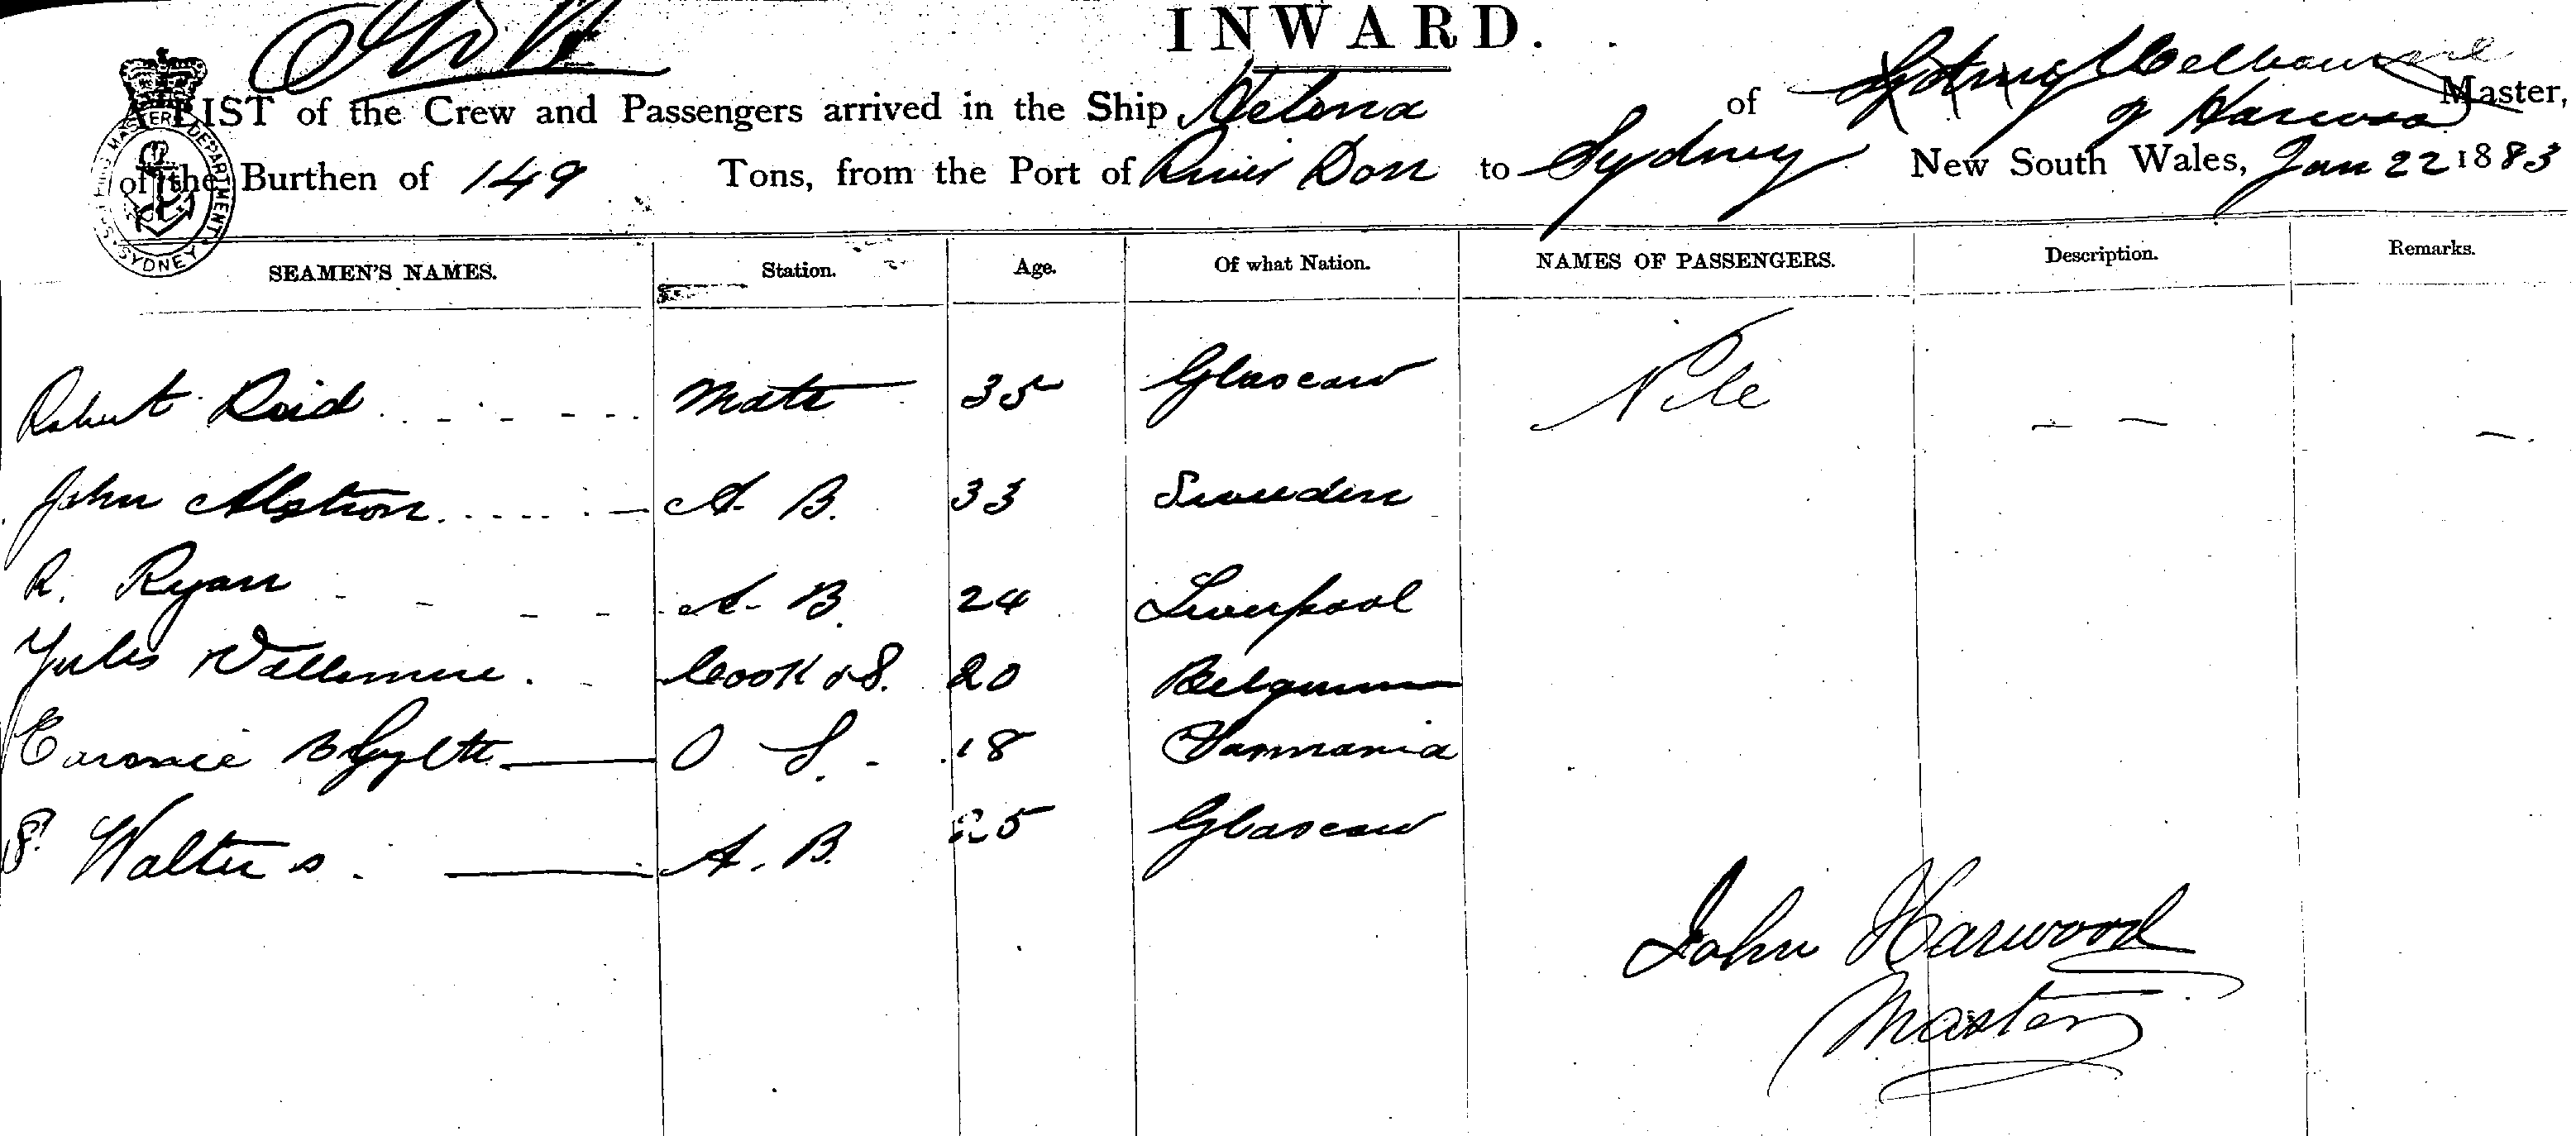 INWARD.
A LIST of the Crew and Passengers arrived in the Ship Helena of Sydney Melbourne J Harwood Master,
of the Burthen of 149 Tons, from the Port of River Don to Sydney New South Wales, Jan 22 1883
SHIPPING MASTER'S DEPARTMENT SYDNEY
SEAMEN'S NAMES. Station. Age. Of what Nation. NAMES OF PASSENGERS. Description. Remarks.
Robert Reid mate 35 Glascow Nile
John Alstron A. B. 33 Sweeden
R. Ryan A. B. 24 Liverpool
Jules Cook & S. 20 Belgium
O S. 18 Tasmania
Walters A. B. 25 Glascow
John Harwood
Master